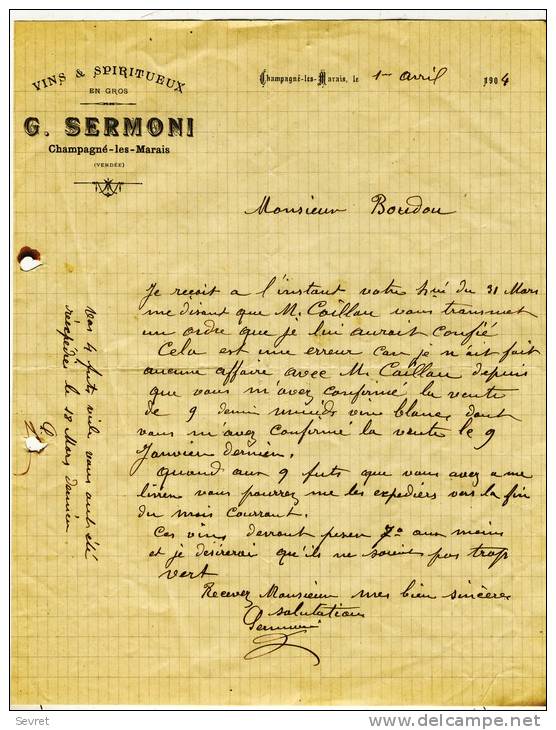 VINS & SPIRITUEUX
EN GROS
G. SERMONI
Champagné-les-Marais
(VENDÉE)
Champagné-les-Marais, le 1er avril 1904
Monsieur Boudou
Je reçoit a l'instant votre du 31 Mars
me disant que M. Caillau vous transmet
un ordre que je lui aurait confié
Cela est une erreur car je n'ait fait
aucune affaire avec M. Caillau depuis
que vous m'avez confirmé la vente
de 9 demi muids vin blanc dont
vous m'avez confirmé la vente le 9
Janvier dernier.
Quand aux 9 futs que vous avez a me
livrer vous pourrez me les expediers vers la fin
du mois courrant.
Ces vins devront peser 7° aux moins
et je désirerai qu'ils ne soient pas trop
vert
Recevez Monsieur mes bien sincères
salutation
Sermoni
Vos 4 futs vide vous ont été
réexpédié le 18 Mars dernier
Sevret
www.delcampe.net